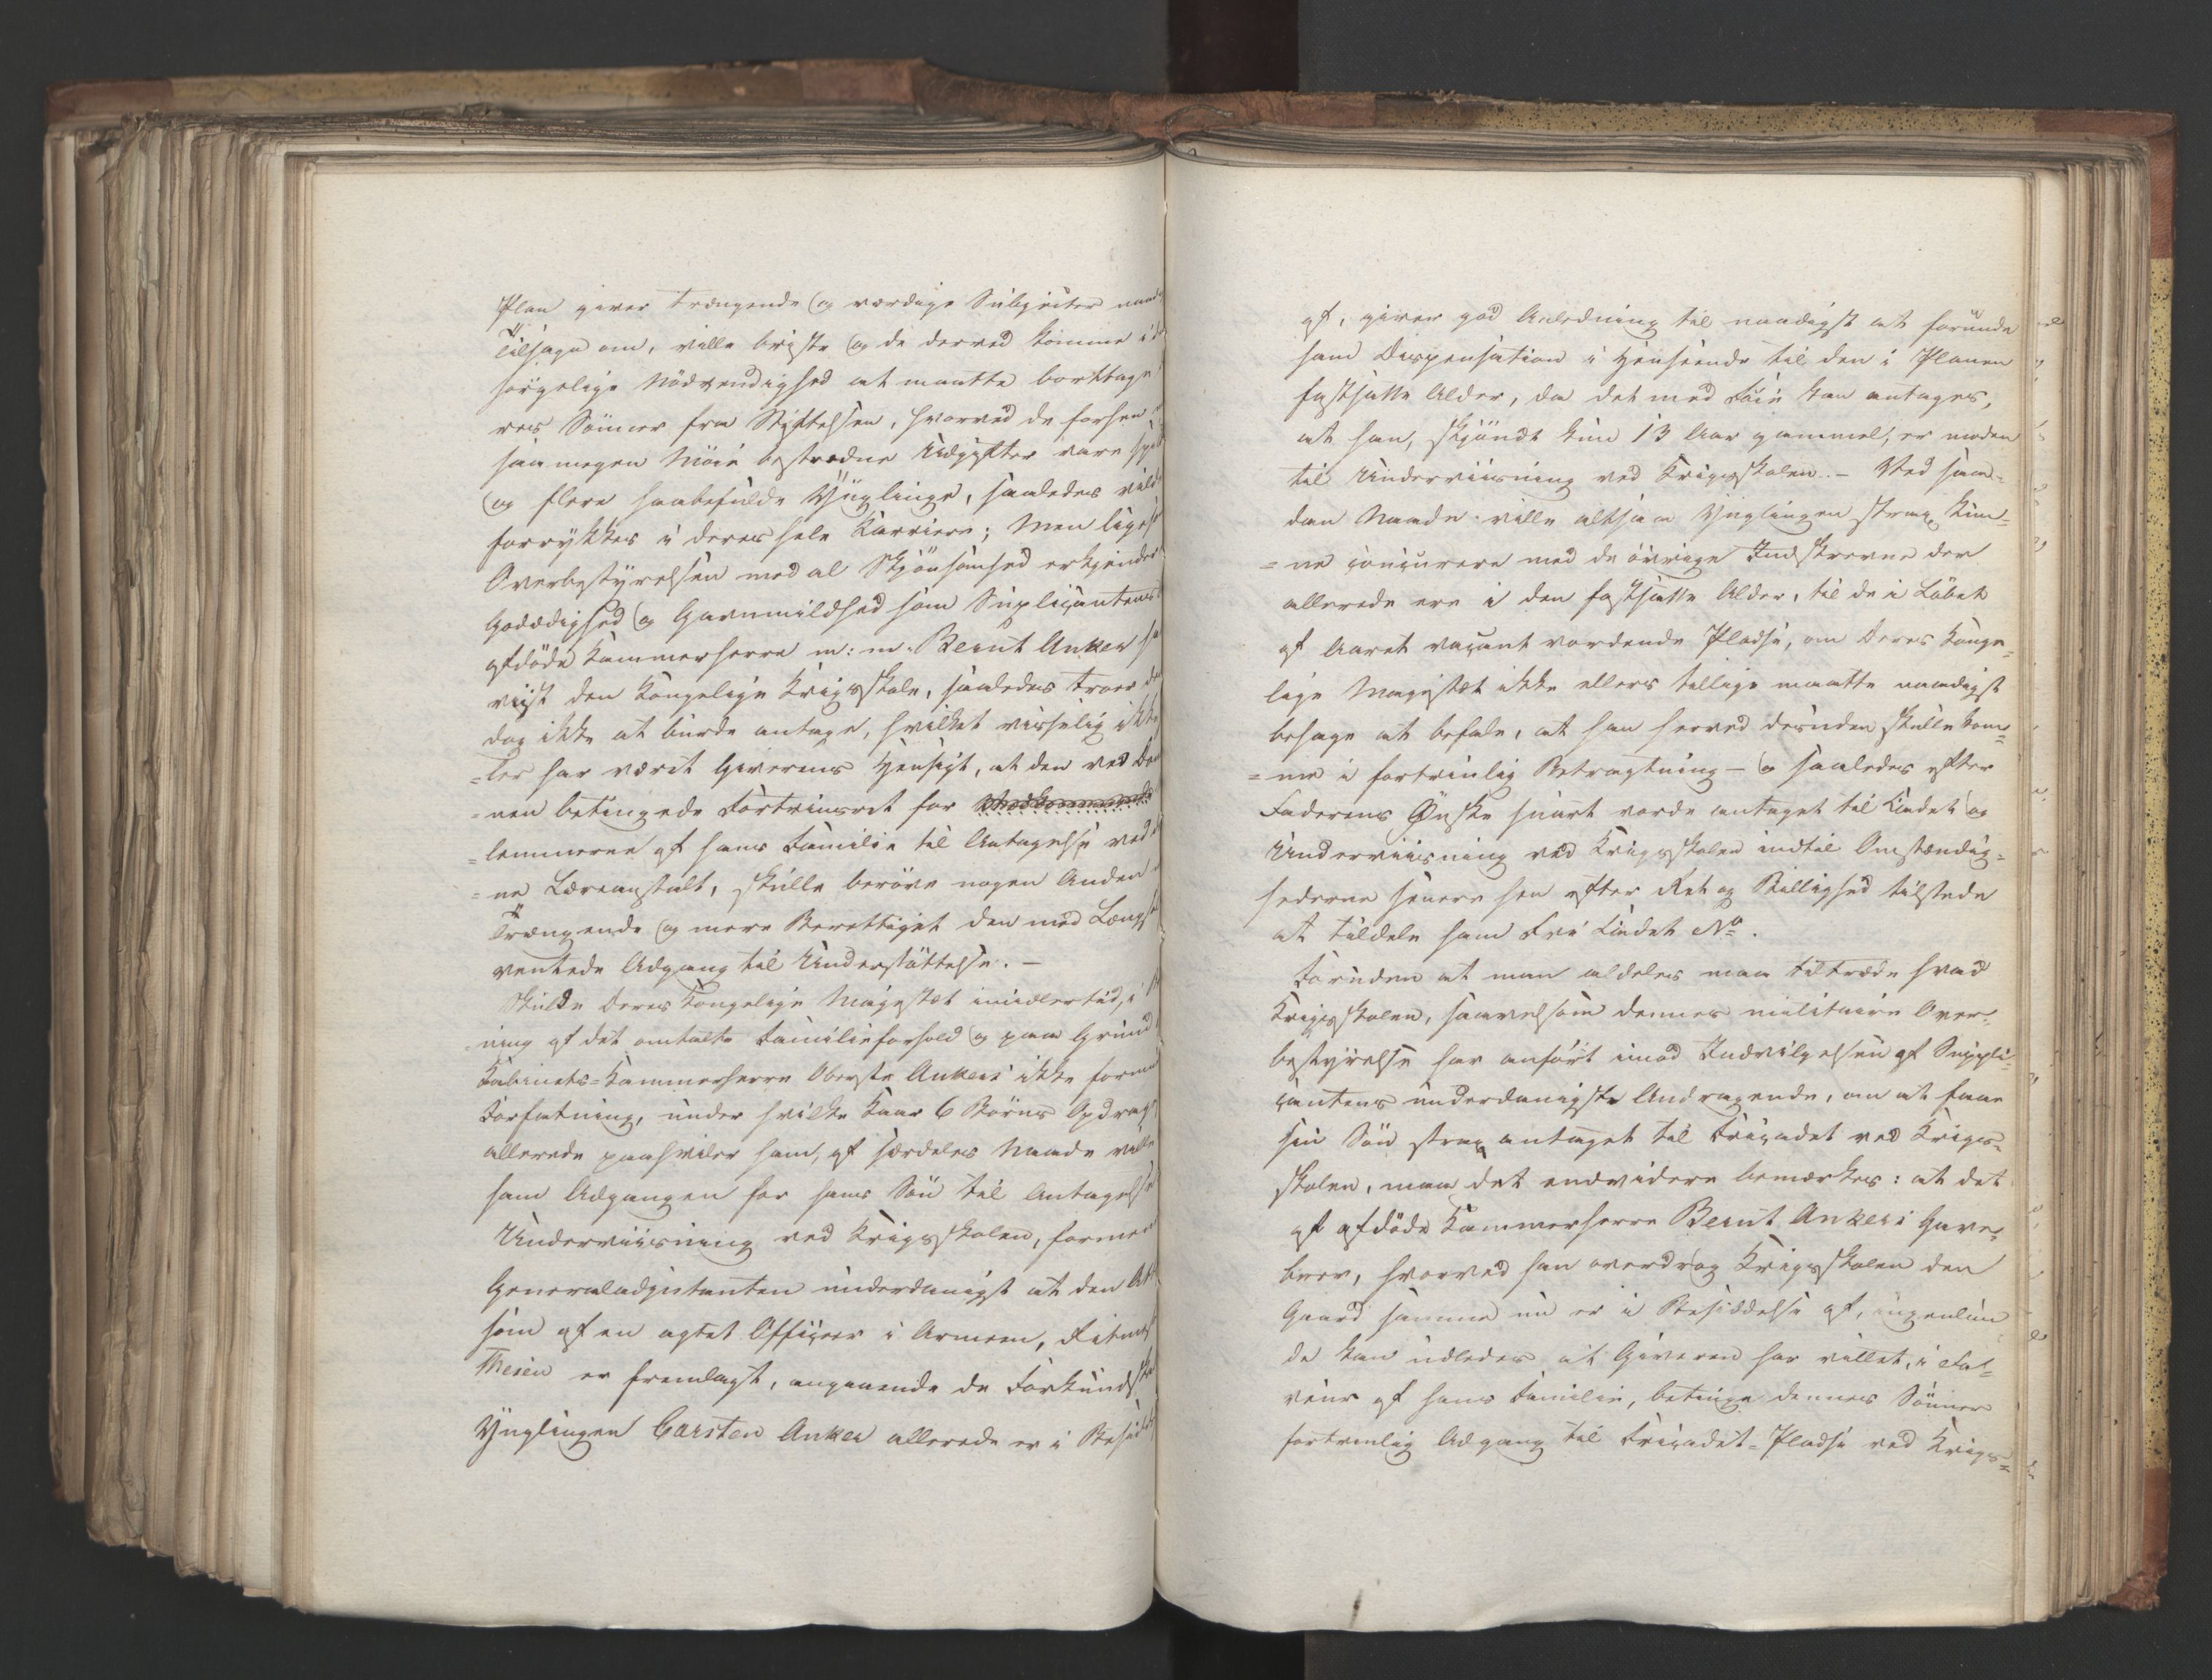 Plan giver trængende og værdige Subjecter naad
Tilsagn om, ville briste og de derved komme i d
sørgelige Nödvendighed at maatte borttage
res Sönner fra Stiftelsen, hvorved de forhen
saa megen Möie bestredne Udgifter vare spil
og flere haabefulde Ynglinge, saaledes vild
forrykkes i deres hele Karriere; Men lige
Overbestyrelsen med al Skjönsomhed erkjender
Godædighed og Gavmildhed som Suplicantens
afdöde Kammerherre m: m. Bernt Anker ha
viist den Kongelige Krigsskole, saaledes troer de
dog ikke at burde antage, hvilket visselig ikke
=ler har været Giverens Hensigt, at den ved Do
=nen betingede Fortrinsret for
=lemmerne af hans Familie til Antagelse ved d
=ne Læreanstalt, skulle beröve nogen Anden
Trængende og mere Berettiget den med Længs
ventede Adgang til Understöttelse. —
Skulde Deres Kongelige Majestæt imidlertid, i
=ning af det omtalte Familieforhold og paa Grund
Kabinets=Kammerherre Oberste Ankers ikke formu
Forfatning, under hvilke Kaar 6 Börns Opdrag
allerede paahviler ham, af særdeles Naade ville
ham Adgangen for hans Sön til Antagelse
Underviisning ved Krigsskolen, formener
Generaladjutanten underdanigst at den Att
som af en agtet Officeer i Armeen, Ritmest
Thesen er fremlagt, angaaende de Forkundsk
Ynglingen Carsten Anker allerede er i Besidd
af, giver god Anledning til naadigst at forunde
ham Dispensation i Henseende til den i Planen
fastsatte Alder, da det med Föie kan antages,
at han, skjöndt kun 13 Aar gammel, er moden
til Underviisning ved Krigsskolen. — Ved saa=
dan Naade ville altsaa Ynglingen strax kun=
=ne concurrere med de övrige Indskrevne der
allerede ere i den fastsatte Alder, til de i Löbet
af Aaret vacant vordende Pladse, om Deres Konge=
lige Majestæt ikke ellers tillige maatte naadigst
behage at befale, at han herved desuden skulle kom=
=me i fortrinlig Betragtning — og saaledes efter
Faderens Önske snart vorde antaget til Cadet og
Underviisning ved Krigsskolen indtil Omstændig=
hederne senere hen efter Ret og Billighed tilstede
at tildele ham Fri Cadet No.
Foruden at man aldeles maa tiltræde hvad
Krigsskolen, saavelsom dennes militaire Over=
bestyrelse har anfört imod Indvilgelsen af Suppli=
cantens underdanigste Andragende, om at faae
sin Sön strax antaget til Fricadet ved Krigs=
skolen, maa det endvidere bemærkes: at det
af afdöde Kammerherre Bernt Ankers Gave=
brev, hvorved han overdrog Krigsskolen den
Gaard samme nu er i Besiddelse af, ingenlun
de kan udledes at Giveren har villet, i Fa=
veur af hans Familie, betinge dennes Sönner
fortrinlig Adgang til Fricadet=Pladse ved Krigs=